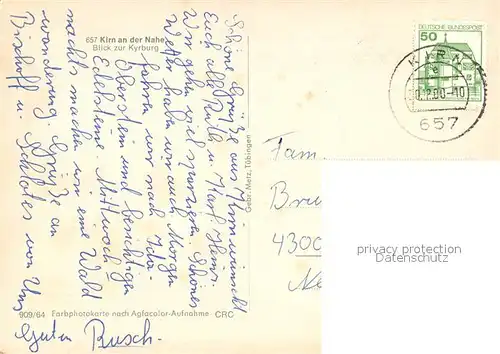 657 Kirn an der Nahe
Blick zur Kyrburg
Schöne Grüße aus Kirn wünscht
Euch alle Ruth u. Karl Heinz.
Wir gehen viel spazieren. Schönes
Wetter haben wir auch. Morgen
fahren wir nach Idar-
Oberstein und besichtigen
Edelsteine. Mittwoch
nachts machen wir eine Wald
wanderung. Grüße an
Bischoff u. Schlotes von Uns
Guten Rusch.
909/64 Farbphotokarte nach Agfacolor-Aufnahme CRC
Gebr. Metz, Tübingen
DEUTSCHE BUNDESPOST
50
KIRN
657
Fam.
4300
privacy protection
Datenschutz